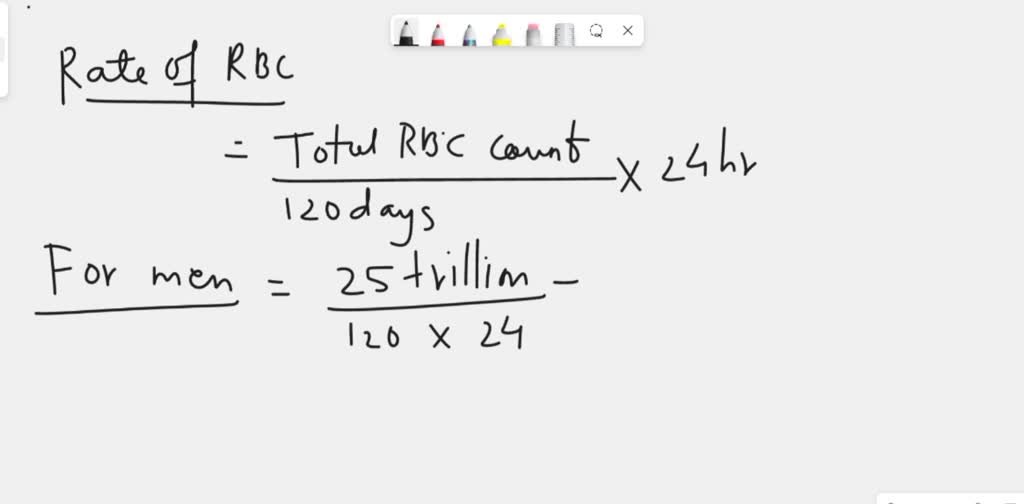 Rate of RBC
= Total RBC count / 120 days × 24 hr
For men = 25 trillion / 120 × 24 –